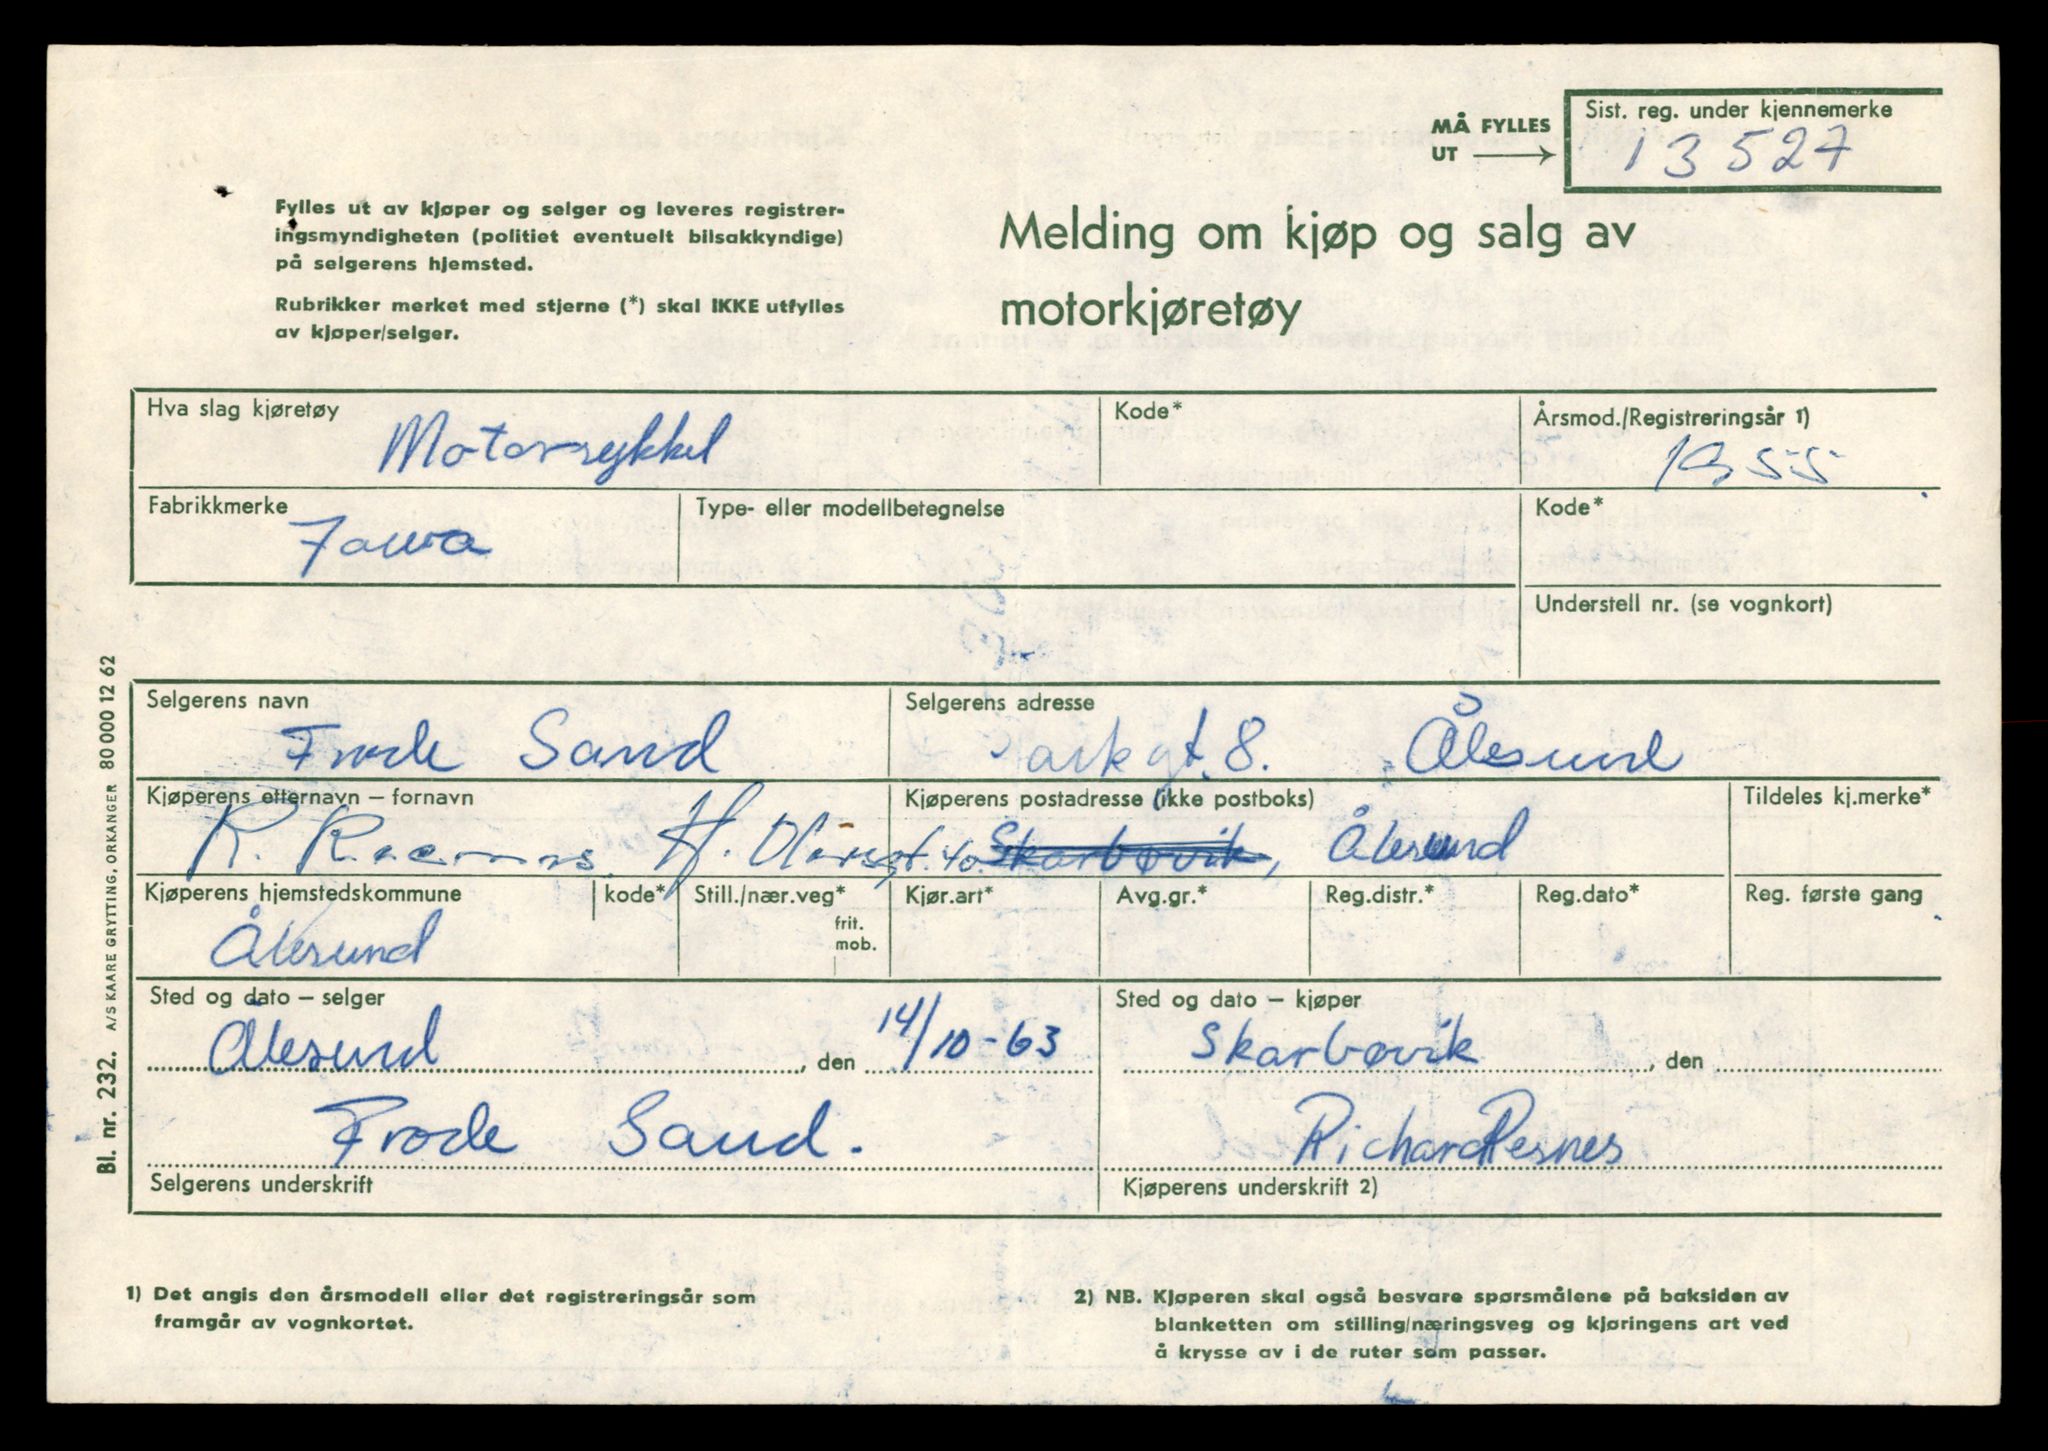 MÅ FYLLES
UT
Sist. reg. under kjennemerke
13527
Fylles ut av kjøper og selger og leveres registrer-
ingsmyndigheten (politiet eventuelt bilsakkyndige)
på selgerens hjemsted.
Rubrikker merket med stjerne (*) skal IKKE utfylles
av kjøper/selger.
Melding om kjøp og salg av
motorkjøretøy
Hva slag kjøretøy
Motorsykkel
Kode*
Årsmod./Registreringsår 1)
1955
Fabrikkmerke
Jawa
Type- eller modellbetegnelse
Kode*
Understell nr. (se vognkort)
Selgerens navn
Frode Sand
Selgerens adresse
Parkgt. 8. Ålesund
Kjøperens etternavn – fornavn
R.
Kjøperens postadresse (ikke postboks)
40. Skarbøvik, Ålesund
Tildeles kj.merke*
Kjøperens hjemstedskommune
Ålesund
kode*
Still./nær.veg*
frit.
mob.
Kjør.art*
Avg.gr.*
Reg.distr.*
Reg.dato*
Reg. første gang
Sted og dato – selger
Ålesund, den 14/10-63
Sted og dato – kjøper
Skarbøvik, den
Frode Sand.
Selgerens underskrift
Richard Resnes
Kjøperens underskrift 2)
1) Det angis den årsmodell eller det registreringsår som
framgår av vognkortet.
2) NB. Kjøperen skal også besvare spørsmålene på baksiden av
blanketten om stilling/næringsveg og kjøringens art ved
å krysse av i de ruter som passer.
Bl. nr. 232. A/S KAARE GRYTTING, ORKANGER 80 000 12 62